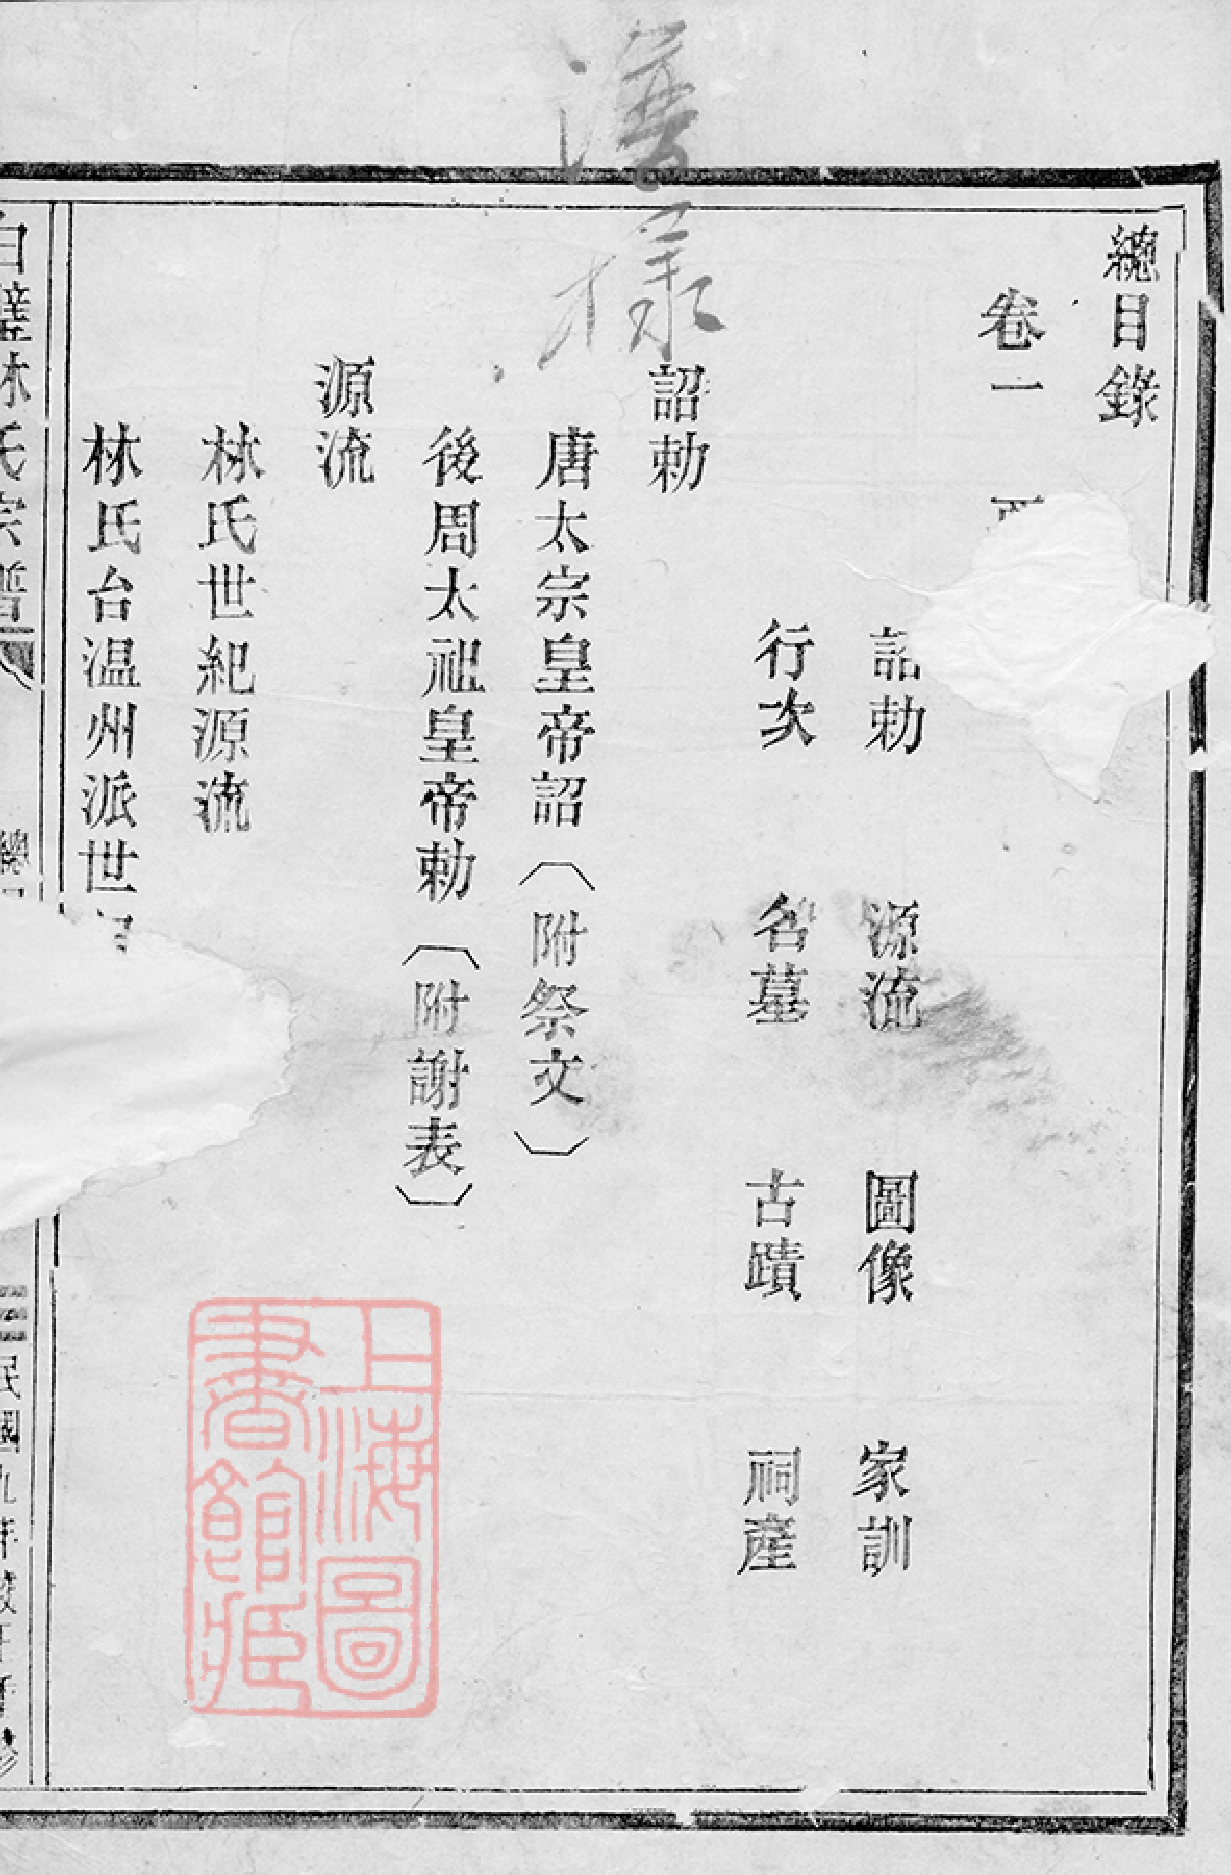 總目錄
卷一
詔勅 源流 圖像 家訓
行次 名墓 古蹟 祠產
詔勅
唐太宗皇帝詔（附祭文）
後周太祖皇帝勅（附謝表）
源流
林氏世紀源流
林氏台温州派世
白壁林氏宗譜 總 民國九年
樣
上海圖書館藏